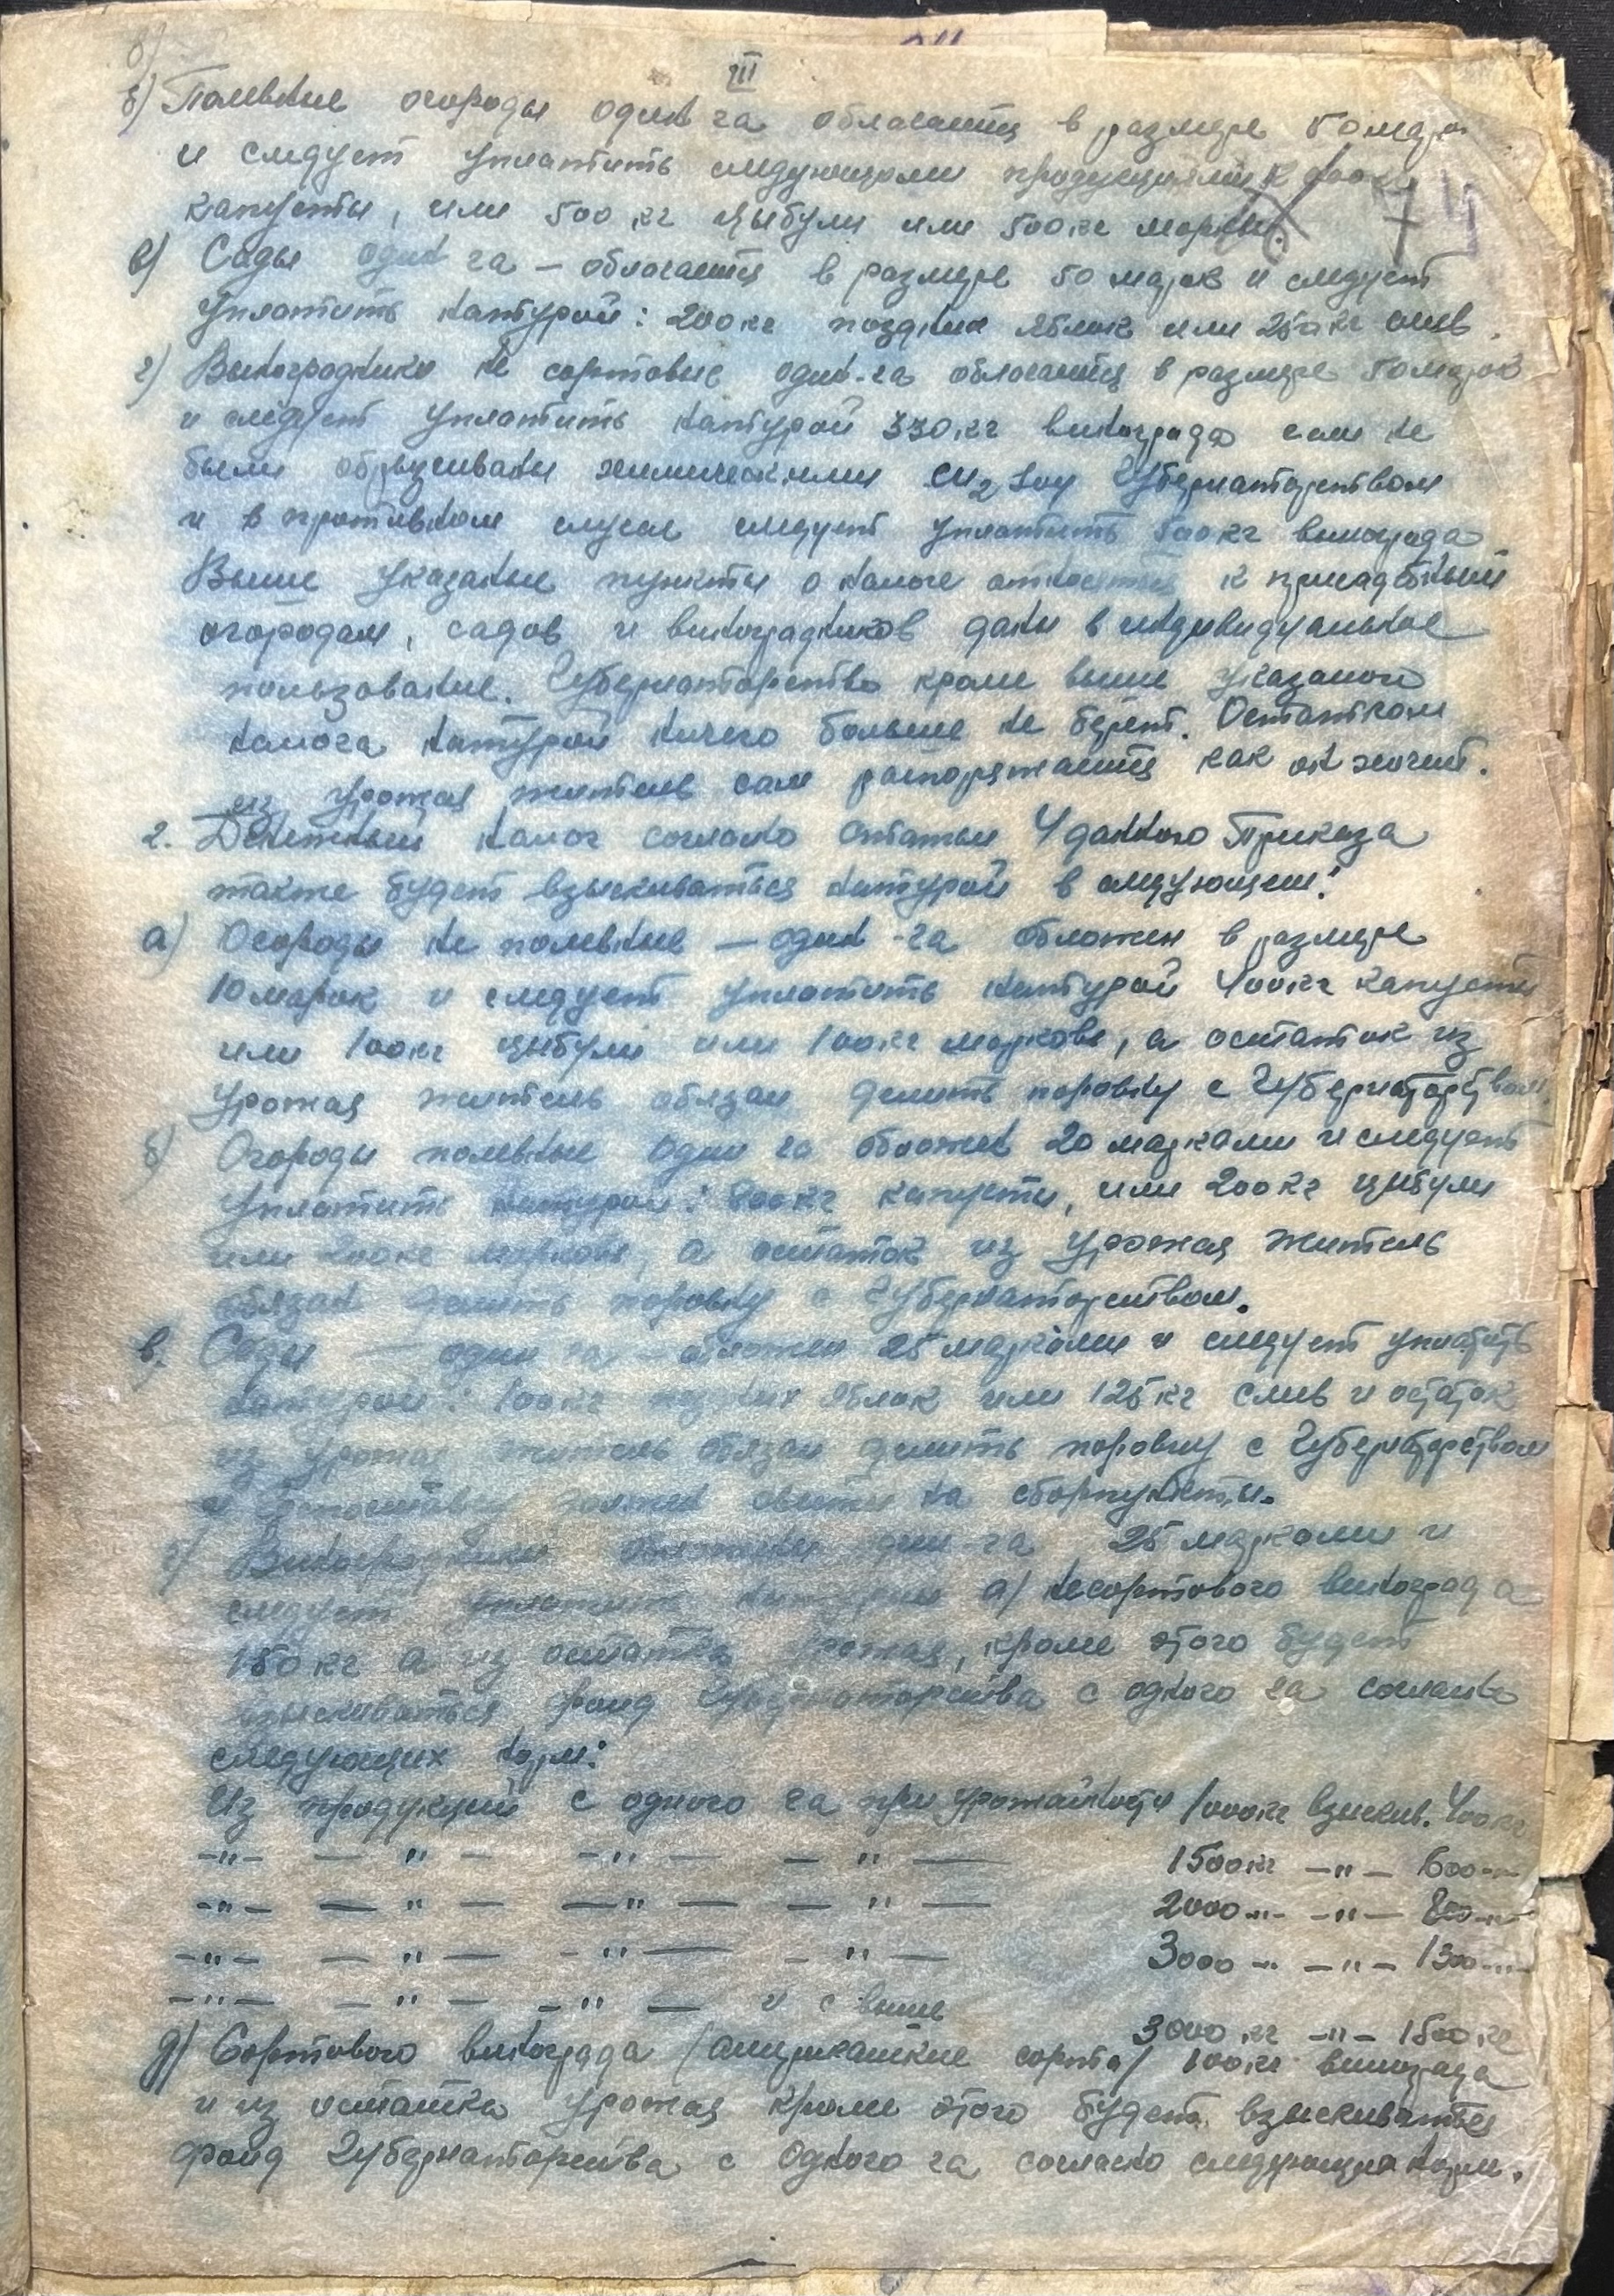 III
б) Полевные огороды один га облагается в размере 50 марок
и следует уплатить следующими продукциями
капусты, или 500 кг цыбули или 500 кг моркви.
в) Сады один га — облогается в размере 50 марок и следует
уплотить натурой: 200 кг поздних яблок или 250 кг слив.
г) Виноградники не сортовые один-га облогается в размере 50 марок
и следует уплатить натурой 330 кг винограда если не
были обрызгивани химическими Губернаторством
и в противном случае следует уплатить 500 кг винограда
Выше указаные пункты о налоге относятся к присадебным
огородам, садов и виноградников дани в индивидуальное
пользование. Губернаторство кроме выше указаного
налога натурой ничего больше не берет. Остатком
из урожая житель сам распоряжается как он хочет.
2. Денежный налог согласно статьи 4 данного Приказа
также будет взыскиваться натурой в следующем:
а) Огороды не полевные — один-га обложен в размере
10 марок и следует уплотить натурой 400 кг капусты
или 100 кг цыбули или 100 кг моркови, а остаток из
урожая житель обязан делить поровну с Губернаторством.
б) Огороды полевные один га обложен 20 марками и следует
уплотить натурой: 800 кг капусты, или 200 кг цыбули
или 200 кг моркови, а остаток из урожая житель
обязан делить поровну с Губернаторством.
в. Сады один га обложен 25 марками и следует уплатить
натурой: 100 кг поздних яблок или 125 кг слив и остаток
из урожая житель обязан делить поровну с Губернаторством
и должен свезти на сборпункты.
г) Виноградники обложени один га 25 марками и
следует уплотить натурой а) несортового винограда
150 кг а из остатка урожая, кроме этого будет
взыскиваться фонд Губернаторства с одного га согласно
следующих норм:
Из продукций с одного га при урожайности 1000 кг взыскив. 400 кг
—"— — " — —"— — " — 1500 кг —"— 600 —"—
—"— — " — —"— — " — 2000 —"— —"— 800 —"—
—"— — " — —"— — " — 3000 —"— —"— 1300 —"—
—"— — " — —"— и с выше 3000 кг —"— 1500 кг
д) Сортового винограда /американские сорта/ 100 кг винограда
и из остатка урожая кроме этого будет взыскиваться
фонд Губернаторства с одного га согласно следующих норм.